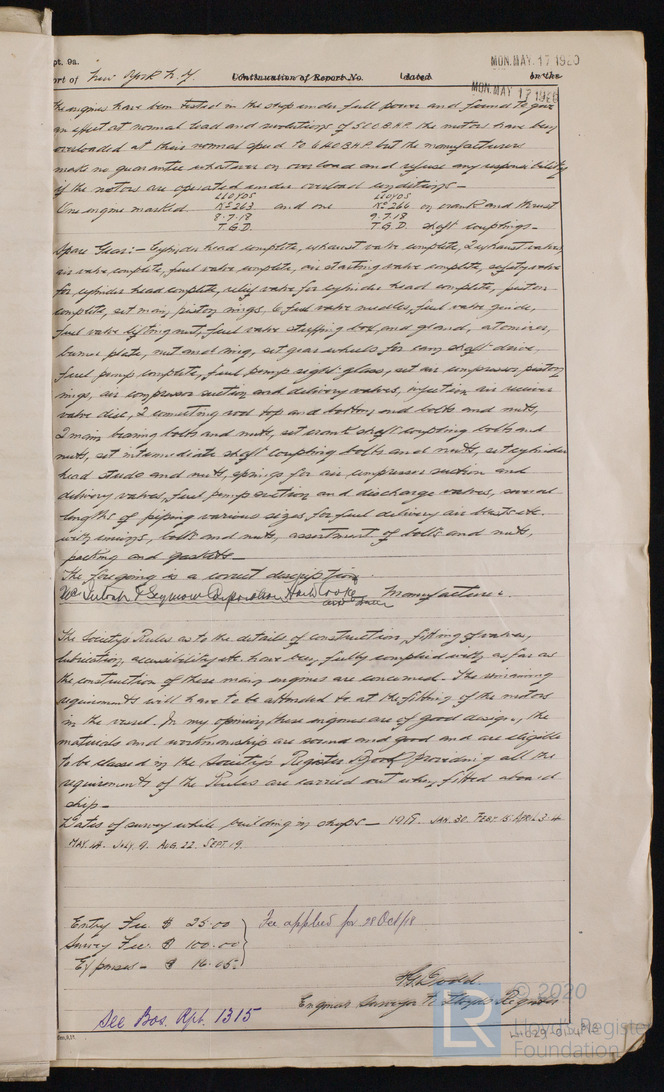 pt. 9a.
MON. MAY. 17 1920
rt of New York N.Y. Continuation of Report No. dated on the
MON. MAY 17 1920
The engines have been tested in the shop under full power and found to give
an effect at normal load and revolutions of 510 B.H.P. the motors have been
overloaded at their normal speed to 640 B.H.P. but the manufacturers
make no guarantee whatever on overload and refuse any responsibility
if the motors are operated under overload conditions —
LLOYDS LLOYDS
One engine marked No 263 and one No 266 on crank and thrust
8.7.18 9.7.18
T.G.D. T.G.D. shaft couplings —
Spare Gear:— Cylinder head complete, exhaust valve complete, 2 exhaust valves,
air valve complete, fuel valve complete, air starting valve complete, safety valve
for cylinder head complete, relief valve for cylinder head complete, piston
complete, set main piston rings, 6 fuel valve needles, fuel valve guide,
fuel valve lifting nut, fuel valve stuffing box and gland, atomiser,
burner plate, nut and ring, set gear wheels for cam shaft drive,
fuel pump complete, fuel pump sight glass, set air compressor piston
rings, air compressor suction and delivery valves, injection air receiver
valve disc, 2 connecting rod top and bottom end bolts and nuts,
2 main bearing bolts and nuts, set crank shaft coupling bolts and
nuts, set intermediate shaft coupling bolts and nuts, set cylinder
head studs and nuts, springs for air compressor suction and
delivery valves, fuel pump suction and discharge valves, several
lengths of piping various sizes for fuel delivery air blasts etc.
with unions, bolts and nuts, assortment of bolts and nuts,
packing and gaskets —
The foregoing is a correct description
McIntosh & Seymour Corporation Manufacturer.
The Society's Rules as to the details of construction, fitting of valves,
lubrication, accessibility etc have been fully complied with, as far as
the construction of these main engines are concerned. The remaining
requirements will have to be attended to at the fitting of the motors
in the vessel. In my opinion these engines are of good design, the
materials and workmanship are sound and good and are eligible
to be classed in the Society's Register Book providing all the
requirements of the Rules are carried out when fitted aboard
ship —
Dates of survey while building in shops — 1918. JAN. 30. FEB. 15. APRIL 3.4.
MAY. 14. JULY. 9. AUG. 22. SEPT. 19.
Entry Fee $ 25.00 Fee applied for 28 Oct/18
Survey Fee $ 100.00
Expenses — $ 16.05
T.G. Dodd.
Engineer Surveyor to Lloyds Register
See Bos. Rpt. 1315
© 2020
LR
Lloyd's Register
Foundation